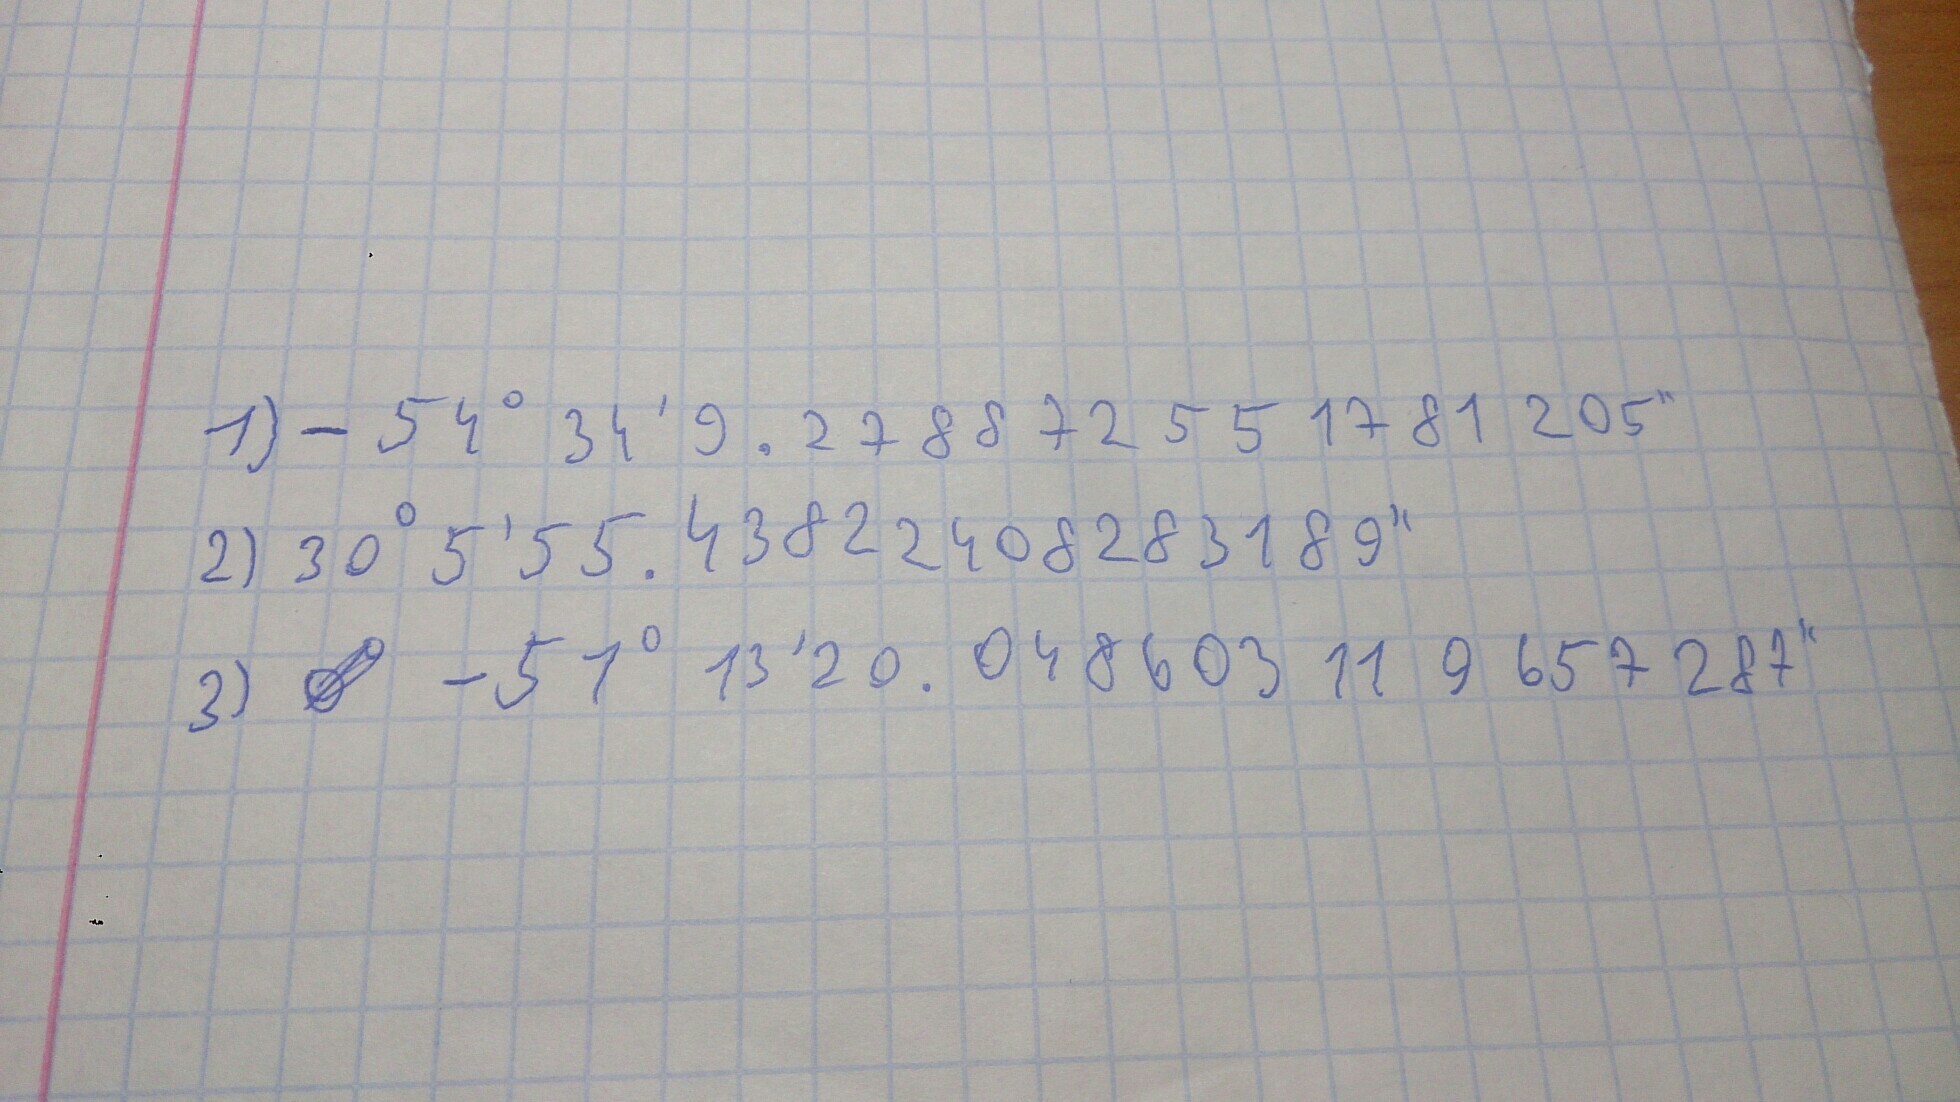 1) - 54° 34' 9.27887255 1781 205"
2) 30° 5' 55.4382240828 3189"
3) -51° 13' 20.04860311 9 657 287"